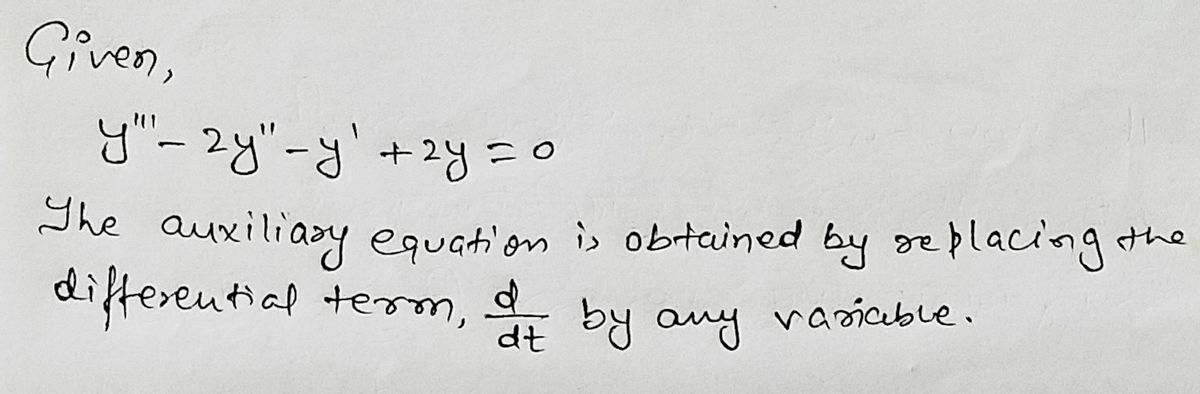 Given,
y''' - 2y'' - y' + 2y = 0
The auxiliary equation is obtained by replacing the
differential term, d/dt by any variable.